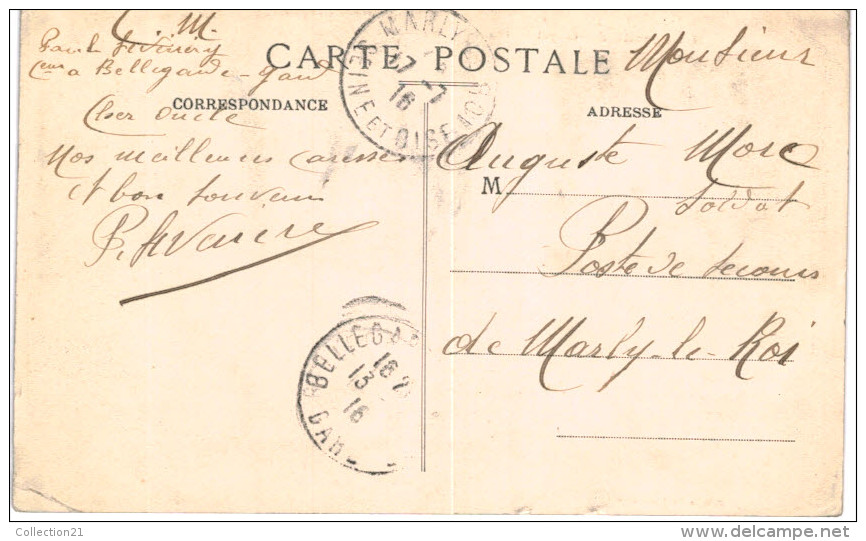 C. M.
Paul
à Bellegarde - Gard
CARTE POSTALE
CORRESPONDANCE
ADRESSE
Cher oncle
Nos meilleures caresses
et bon souvenir
P.
Monsieur
Auguste More
M
Soldat
Poste de secours
de Marly-le-Roi
MARLY
SEINE ET OISE
17-7
16
BELLEGA
13
16
GARD
Collection21
www.delcampe.net